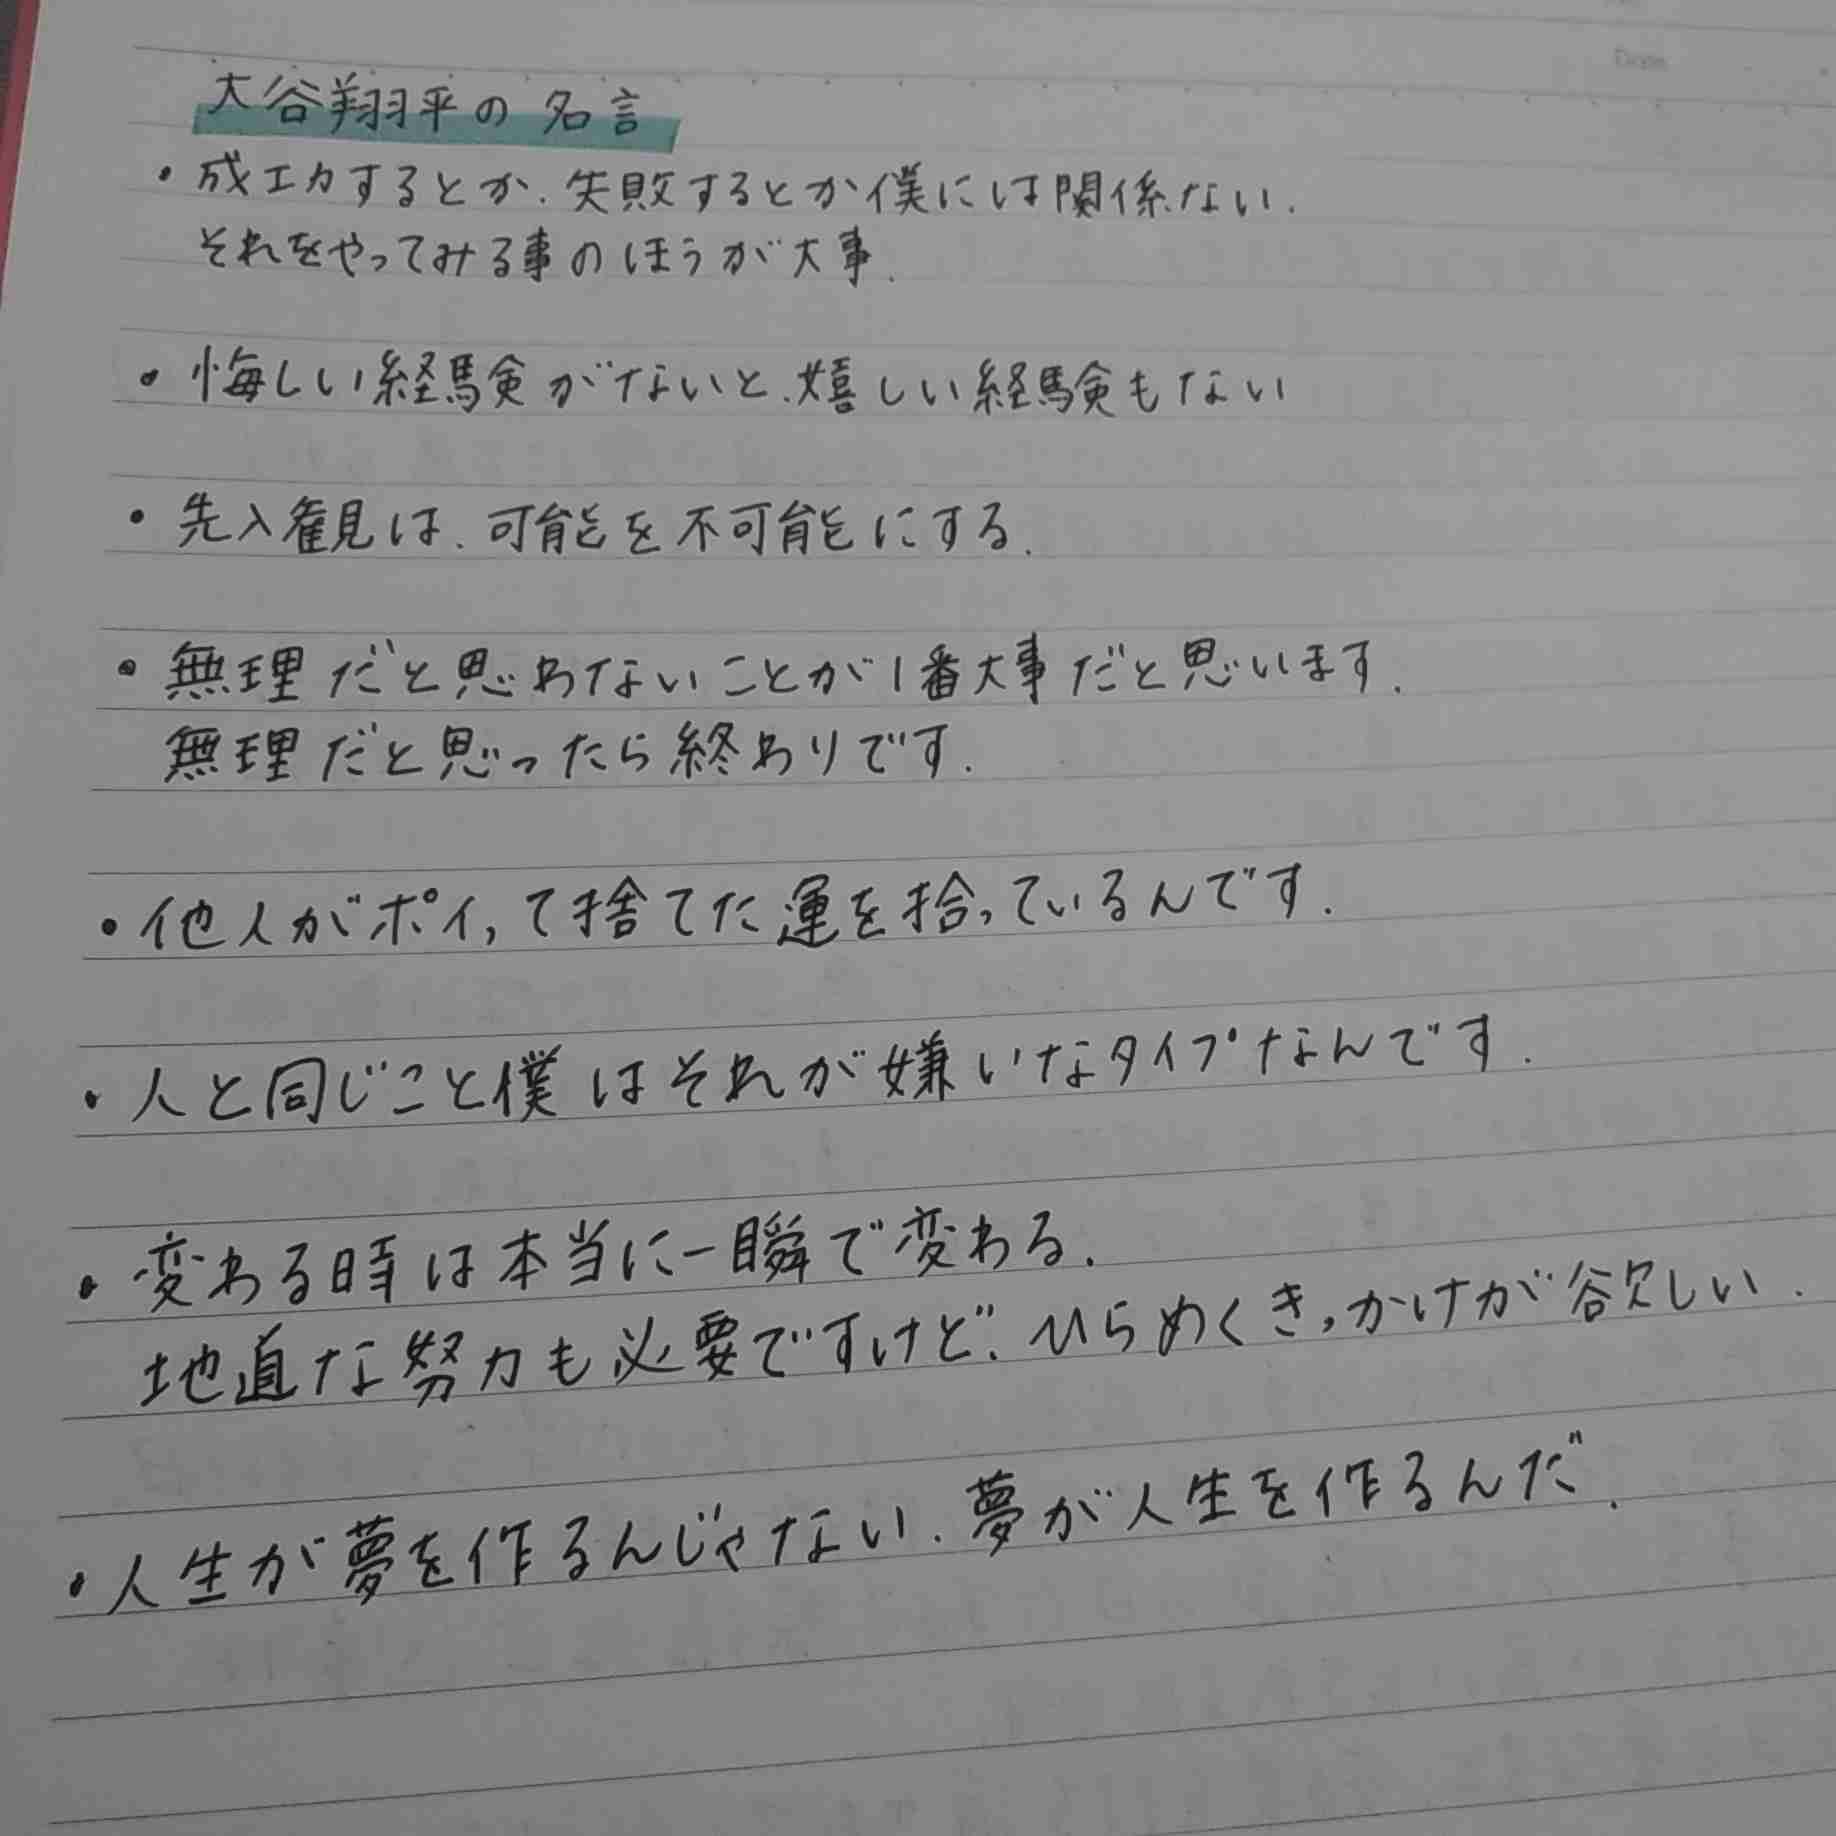 大谷翔平の名言
・成功するとか、失敗するとか僕には関係ない.
それをやってみる事のほうが大事.
・悔しい経験がないと、嬉しい経験もない
・先入観は、可能を不可能にする.
・無理だと思わないことが1番大事だと思います.
無理だと思ったら終わりです.
・他人がポイって捨てた運を拾っているんです.
・人と同じこと僕はそれが嫌いなタイプなんです.
・変わる時は本当に一瞬で変わる.
地直な努力も必要ですけど、ひらめくきっかけが欲しい.
・人生が夢を作るんじゃない.夢が人生を作るんだ.